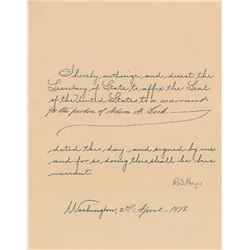 I hereby authorize and direct the
Secretary of State to affix the Seal
of the United States to a warrant
for the pardon of Adam A. Lock.
dated this day, and signed by me
and for so doing this shall be his
warrant.
R. B. Hayes
Washington, 3rd April, 1878.